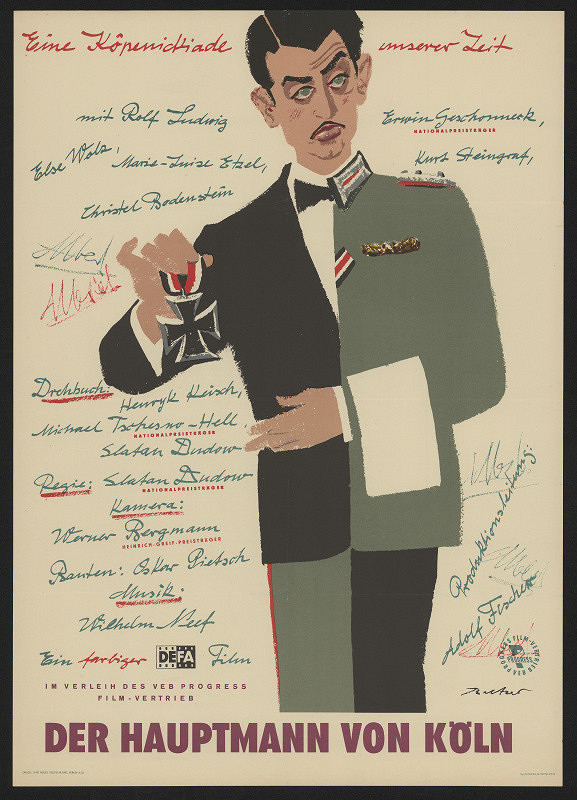 Eine Köpenickiade unserer Zeit
mit Rolf Ludwig
Erwin Geschonneck,
NATIONALPREISTRÄGER
Else Wolz,
Marie-Luise Etzel,
Kurt Steingraf,
Christel Bodenstein
Drehbuch:
Henryk Keisch,
Michael Tschesno-Hell
NATIONALPREISTRÄGER
Slatan Dudow
Regie: Slatan Dudow
NATIONALPREISTRÄGER
Kamera:
Werner Bergmann
HEINRICH-GREIF-PREISTRÄGER
Bauten: Oskar Pietsch
Musik:
Wilhelm Neef
Produktionsleitung:
Adolf Fischer
Ein farbiger DEFA Film
PROGRESS FILM-VERTRIEB
PROGRESS
IM VERLEIH DES VEB PROGRESS
FILM-VERTRIEB
DER HAUPTMANN VON KÖLN